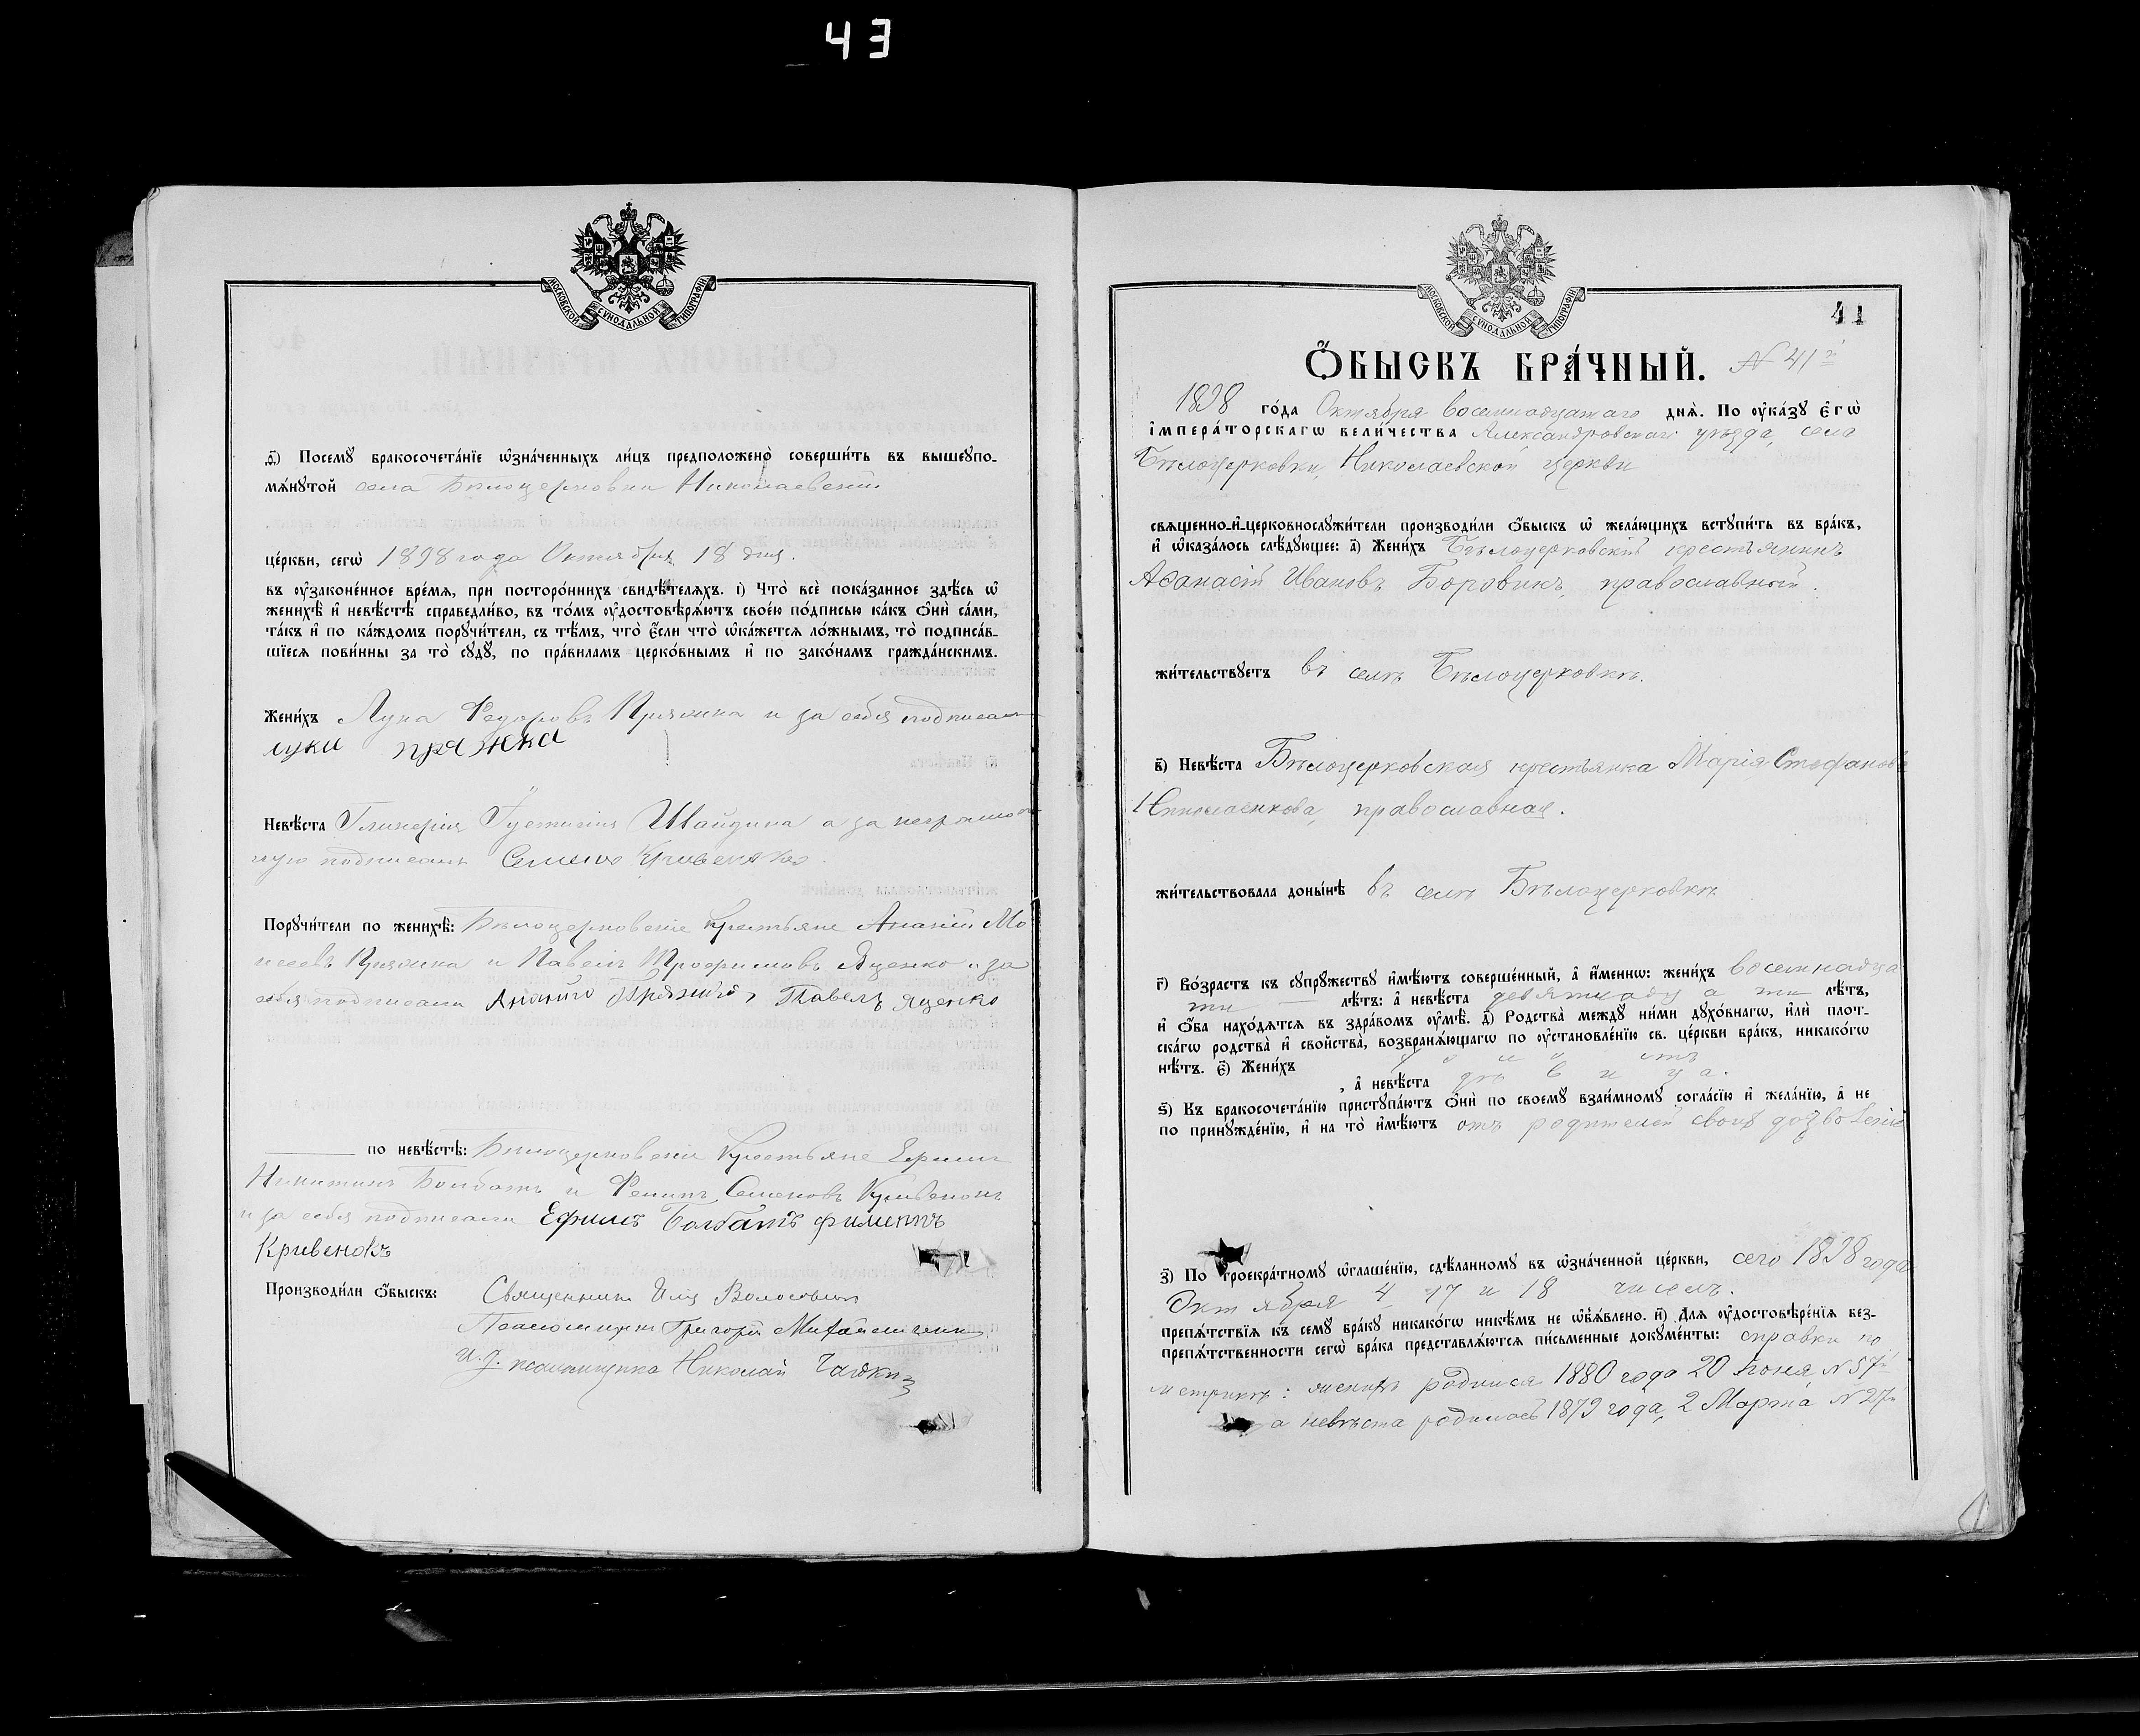 43
МОСКОВСКОЙ СУНОДАЛЬНОЙ ТИПОГРАФІИ
Посемꙋ̀ бракосочета́нїе ѡ҆зна́ченныхъ ли́цъ предположено̀ соверши́ть въ вышеꙋпо-
мѧ́нꙋтой села Бѣлоцерковки Николаевской
це́ркви, сегѡ̀ 1898 года Октября 18 дня.
въ ᲂу҆зако́ненное вре́мѧ, при посторо́ннихъ свидѣ́телѧхъ. і) Что̀ всѐ пока́занное здѣ́сь ѡ҆
женихѣ̀ и҆ невѣ́стѣ справедли́во, въ то́мъ ᲂу҆достовѣрѧ́ютъ свое́ю по́дписью ка́къ ѻ҆нѝ са́ми,
та́къ и҆ по ка́ждомъ порꙋчи́тели, съ тѣ́мъ, что̀ є҆́сли что̀ ѡ҆ка́жетсѧ ло́жнымъ, то̀ подписа́в-
шїесѧ пови́нны за то̀ сꙋдꙋ̀, по пра́виламъ церко́внымъ и҆ по зако́намъ гражда́нскимъ.
Жени́хъ Лука Федоровъ Пряжка и за себя подписался
лука пряжка
Невѣ́ста Гликерія Шайдина а за неграмот
ную подписалъ Семенъ Кривенко
Порꙋчи́тели по женихѣ̀: Бѣлоцерковскіе крестьяне Ананій Мо
исеевъ Пряжка и Павелъ Трофимовъ Яценко и за
себя подписали Павелъ Яценко
по невѣ́стѣ: Бѣлоцерковскіе крестьяне Ефимъ
Никитинъ Болбатъ и Семеновъ Кривенокъ
и за себя подписали Ефимъ Болбатъ филиппъ
Кривенокъ
Производи́ли ѻ҆́быскъ: Священникъ Илія
Псаломщикъ Григорій
И. д. псаломщика Николай
МОСКОВСКОЙ СУНОДАЛЬНОЙ ТИПОГРАФІИ
41
Ѻ҆́БЫСКЪ БРА́ЧНЫЙ. № 41й
1898 го́да Октября восемнадцатаго днѧ̀. По ᲂу҆ка́зꙋ є҆гѡ̀
і҆мпера́торскагѡ вели́чества Александровскаго уѣзда, села
Бѣлоцерковки, Николаевской церкви
свѧщенно-и҆-церковнослꙋжи́тели производи́ли ѻ҆́быскъ ѡ҆ жела́ющихъ встꙋпи́ть въ бра́къ,
и҆ ѡ҆каза́лось слѣ́дꙋющее: а҃) Жени́хъ Бѣлоцерковскій крестьянинъ
Аѳанасій Ивановъ Боровикъ, православный.
жи́тельствꙋетъ въ селѣ Бѣлоцерковкѣ.
в҃) Невѣ́ста Бѣлоцерковская крестьянка Марія Стефанова
Николаенкова, православная.
жи́тельствовала доны́нѣ въ селѣ Бѣлоцерковкѣ
г҃) Во́зрастъ къ сꙋпрꙋ́жествꙋ и҆мѣ́ютъ соверше́нный, а҆ и҆́менно: жени́хъ восемнадца
ти лѣ́тъ: а҆ невѣ́ста девятнадцати лѣ́тъ,
и҆ ѻ҆́ба нахо́дѧтсѧ въ здра́вомъ ᲂу҆мѣ̀. д҃) Родства̀ междꙋ ни́ми дꙋхо́внагѡ, и҆лѝ плот-
ска́гѡ родства̀ и҆ сво́йства̀, возбранѧ́ющагѡ по ᲂу҆становле́нїю св. це́ркви бра́къ, никако́гѡ
нѣ́тъ. є҃) Жени́хъ холостъ
, а҆ невѣ́ста дѣвица.
ѕ҃) Къ бракосочета́нїю пристꙋпа́ютъ ѻ҆нѝ по своемꙋ̀ взаи́мномꙋ согла́сїю и҆ жела́нїю, а҆ не
по принꙋжде́нїю, и҆ на то̀ и҆мѣ́ютъ отъ родителей своихъ дозволеніе
з҃) По троекра́тномꙋ ѡ҆глаше́нїю, сдѣ́ланномꙋ въ ѡ҆зна́ченной це́ркви, сего 1898 года
Октября 4 17 и 18 чиселъ.
препѧ́тствїѧ къ семꙋ̀ бра́кꙋ никако́гѡ никѣ́мъ не ѡ҆б̾ѧ́влено. и҃) Длѧ ᲂу҆достовѣре́нїѧ без-
препѧ́тственности сегѡ̀ бра́ка представлѧ́ютсѧ пи́сьменные докꙋме́нты: справки по
метрикѣ: женихъ родился 1880 года 20 Іюня, № 57й
а невѣста родилась 1879 года, 2 Марта № 27й